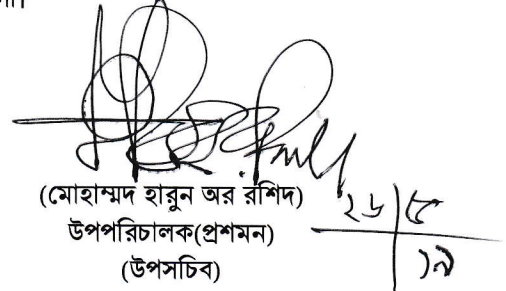 (মোহাম্মদ হারুন অর রশিদ)
উপপরিচালক(প্রশমন)
(উপসচিব)
২৬|৫
১৯